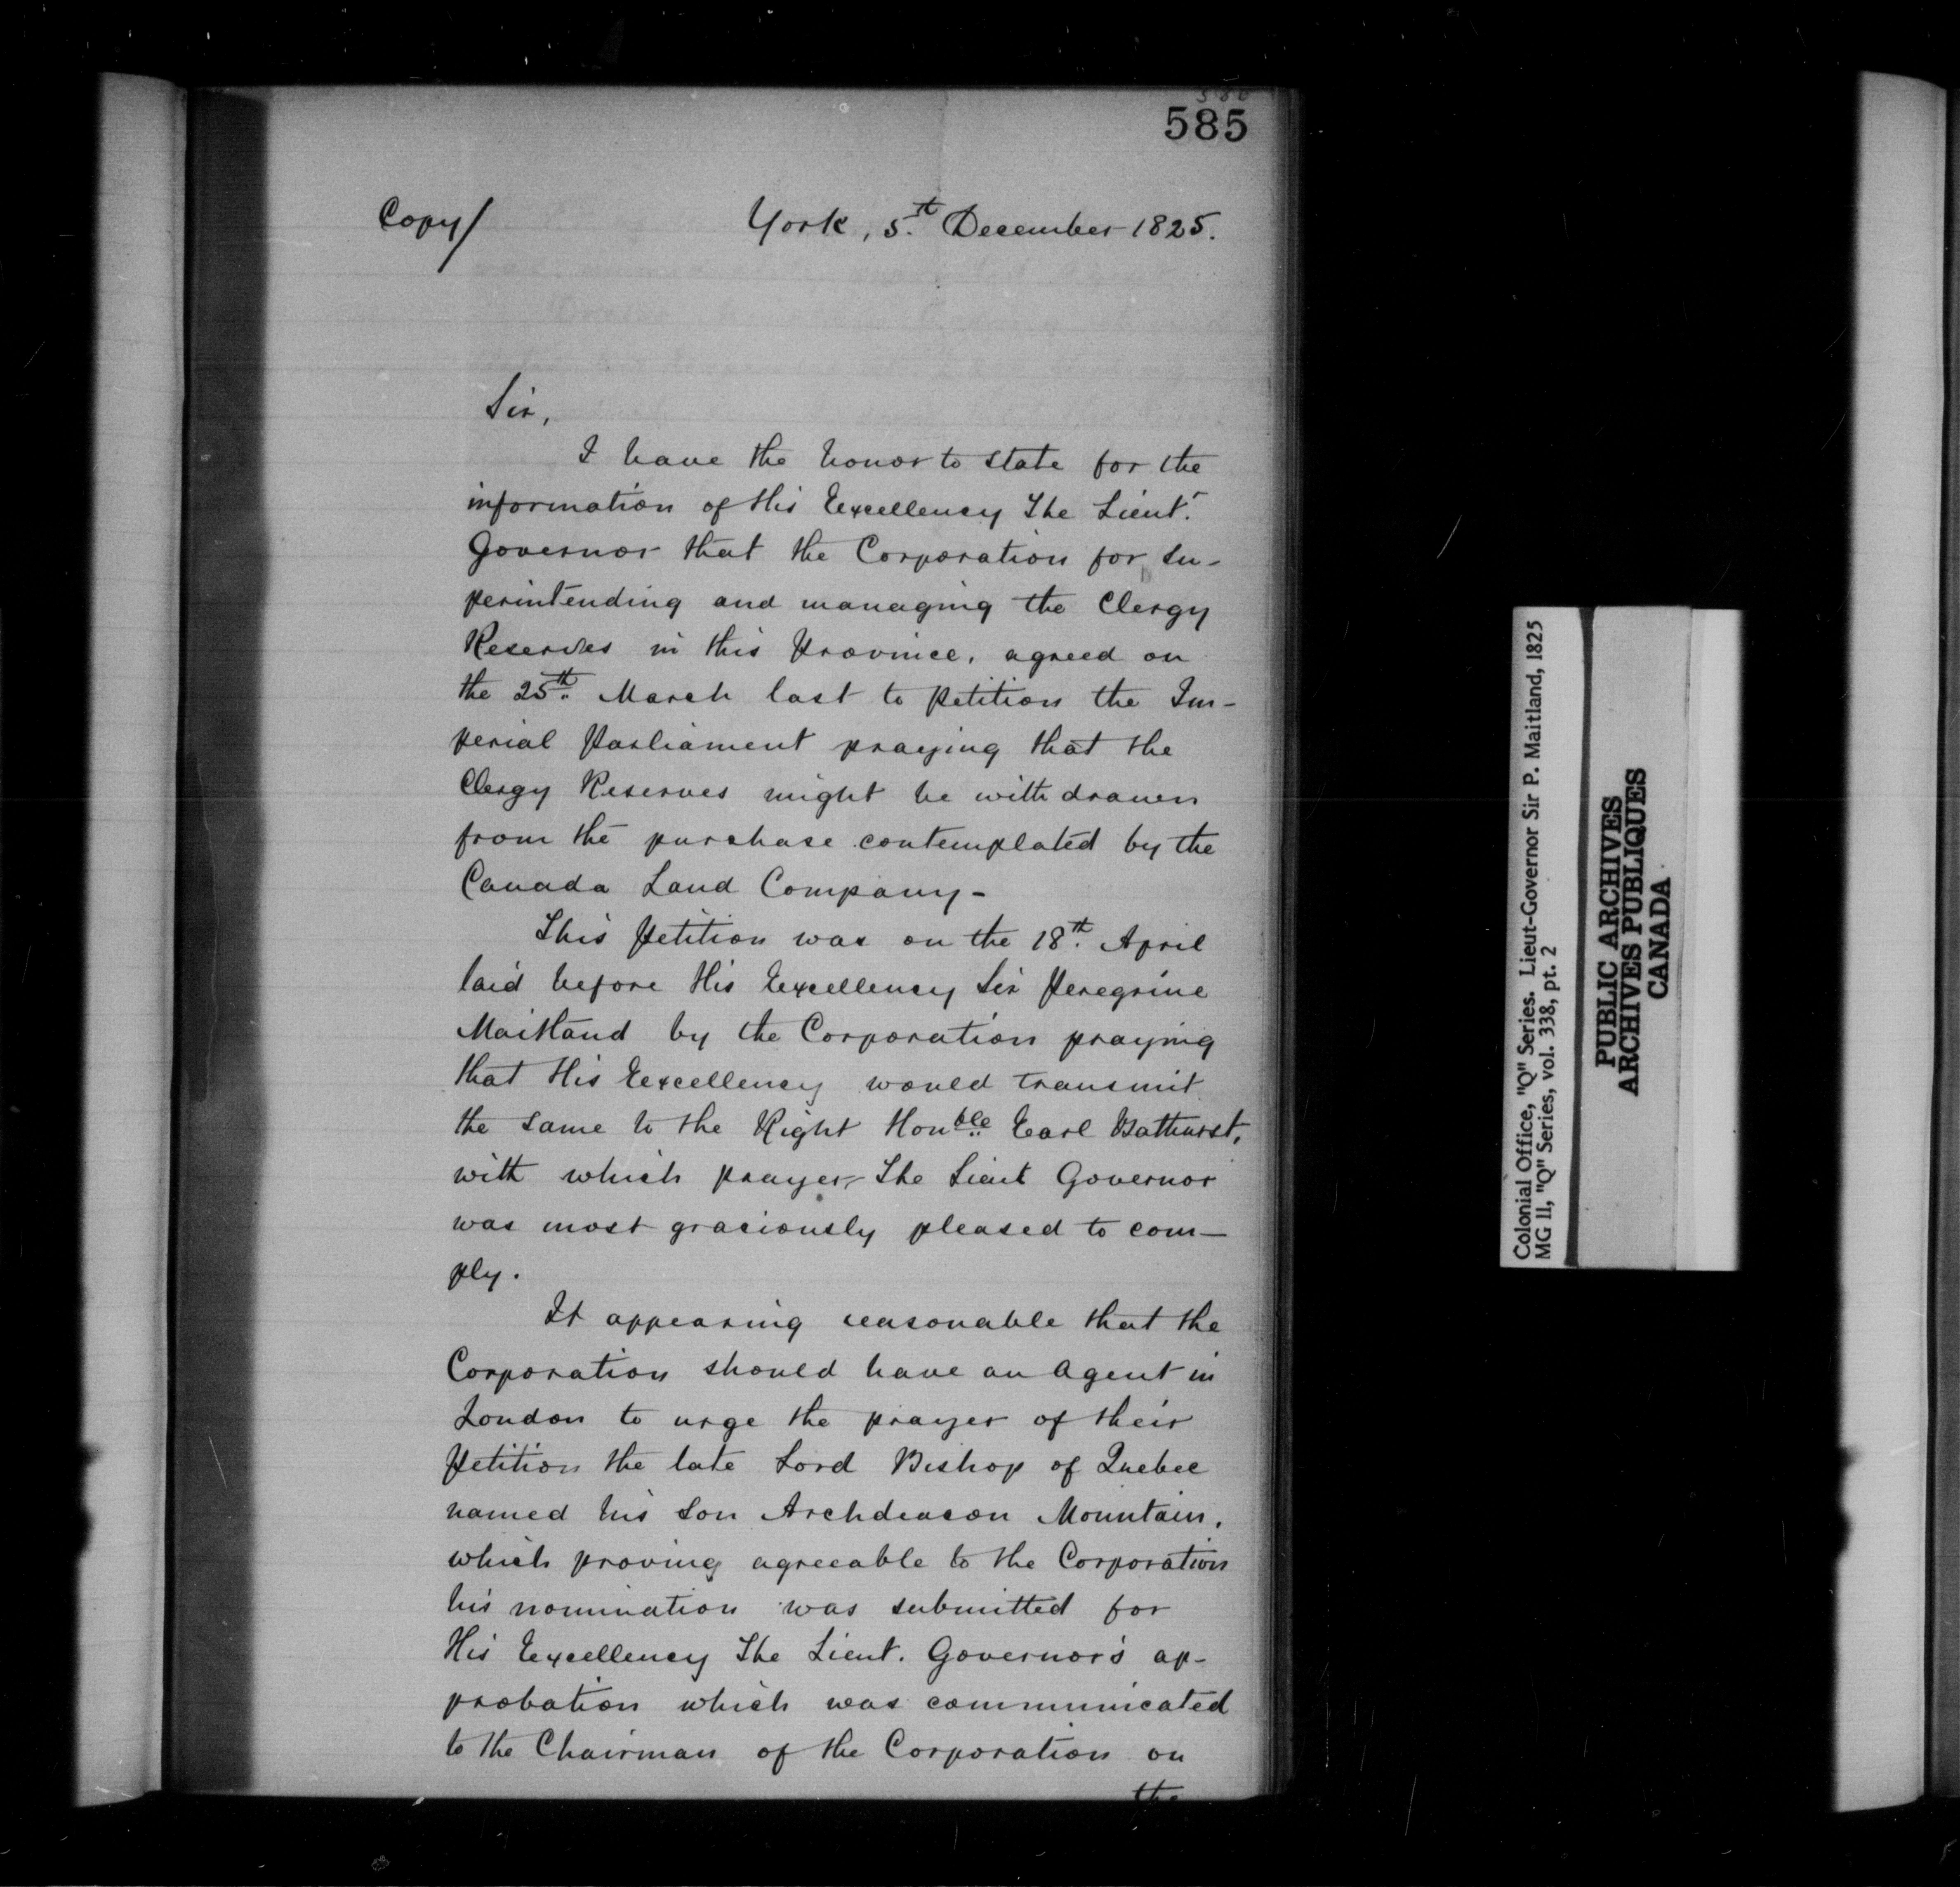 585
Copy/
York, 5th. December 1825.
Sir,
I have the honor to state for the
information of His Excellency The Lieut.
Governor that the Corporation for Su-
perintending and managing the Clergy
Reserves in this Province, agreed on
the 25th. March last to petition the Im-
perial Parliament praying that the
Clergy Reserves might be withdrawn
from the purchase contemplated by the
Canada Land Company-
This Petition was on the 18th. April
laid before His Excellency Sir Peregrine
Maitland by the Corporation praying
that His Excellency would transmit
the same to the Right Honble. Earl Bathurst,
with which prayer The Lieut Governor
was most graciously pleased to com-
ply.
It appearing reasonable that the
Corporation should have an Agent in
London to urge the prayer of their
Petition the late Lord Bishop of Quebec
named his Son Archdeacon Mountain,
which proving agreeable to the Corporation
his nomination was submitted for
His Excellency The Lieut. Governor's ap-
probation which was communicated
to the Chairman of the Corporation on
the
Colonial Office, "Q" Series. Lieut-Governor Sir P. Maitland, 1825
MG 11, "Q" Series, vol. 338, pt. 2
PUBLIC ARCHIVES
ARCHIVES PUBLIQUES
CANADA